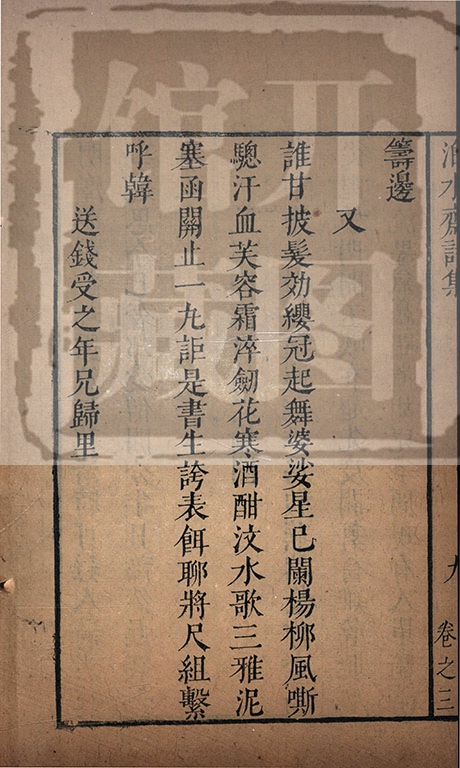 籌邊
又
誰甘披髮効纓冠起舞婆娑星已闌楊柳風嘶
驄汗血芙容霜淬劒花寒酒酣汶水歌三雅泥
塞函關止一九詎是書生誇表餌聊將尺組繫
呼韓
送錢受之年兄歸里
卷之三
開圖
館藏